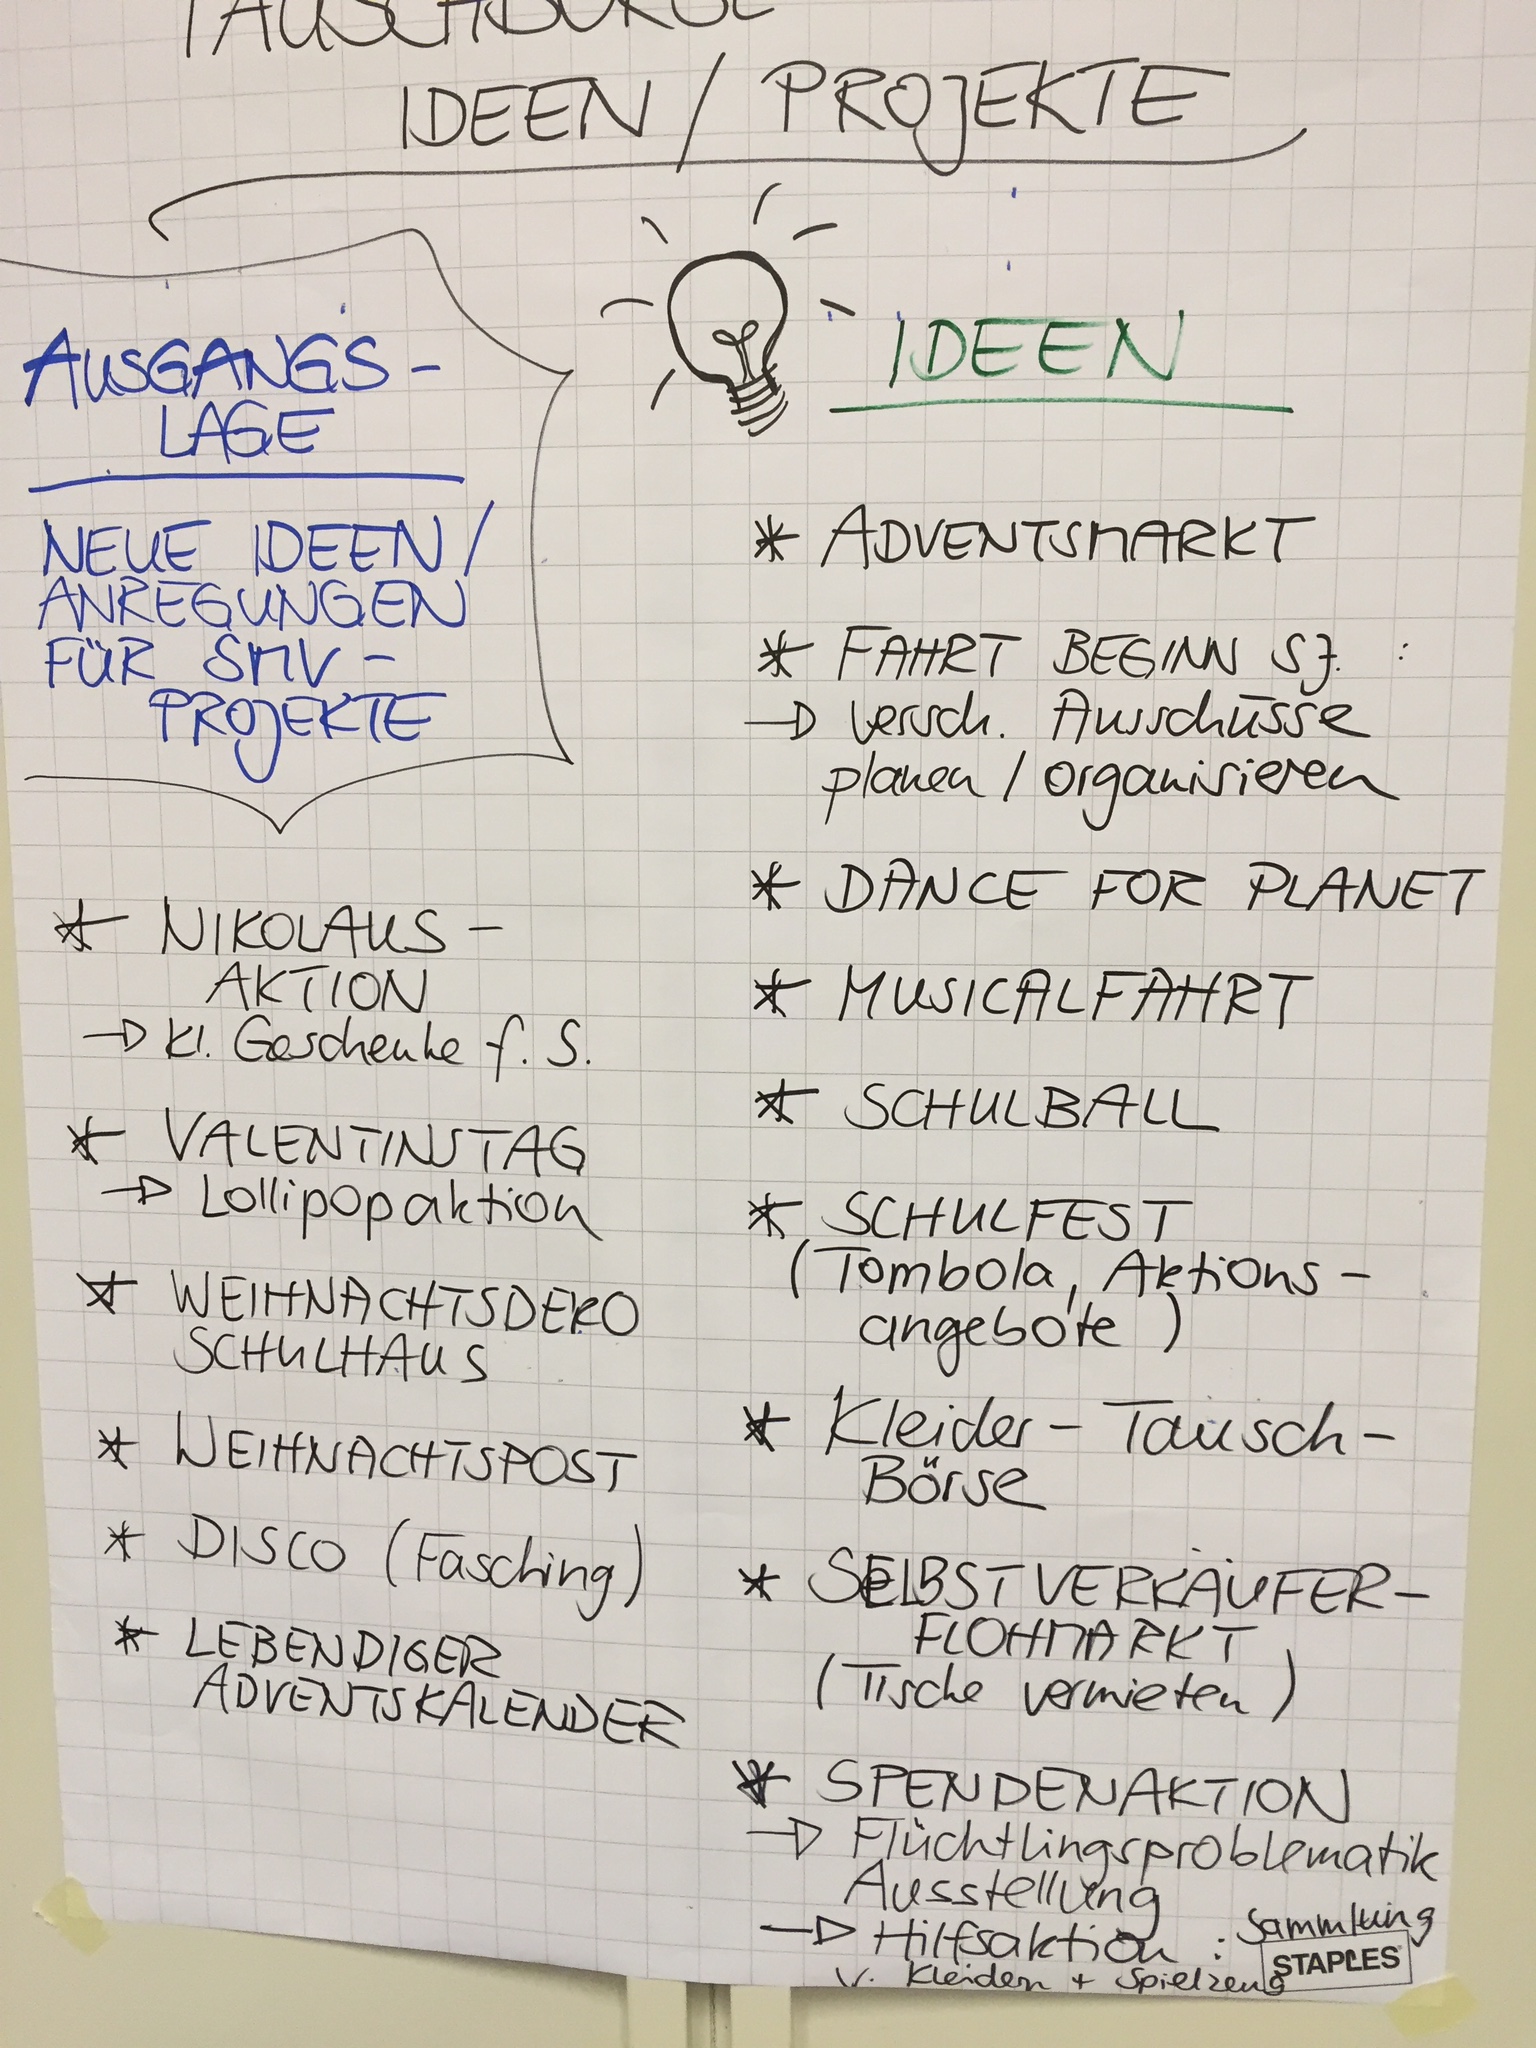 TAUSCHBÖRSE
IDEEN / PROJEKTE
AUSGANGS-
LAGE
NEUE IDEEN /
ANREGUNGEN
FÜR SMV-
PROJEKTE
* NIKOLAUS-
AKTION
→ kl. Geschenke f. S.
* VALENTINSTAG
→ Lollipopaktion
* WEIHNACHTSDEKO
SCHULHAUS
* WEIHNACHTSPOST
* DISCO (Fasching)
* LEBENDIGER
ADVENTSKALENDER
IDEEN
* ADVENTSMARKT
* FAHRT BEGINN SJ. :
→ versch. Ausschüsse
planen / organisieren
* DANCE FOR PLANET
* MUSICALFAHRT
* SCHULBALL
* SCHULFEST
(Tombola, Aktions-
angebote)
* Kleider-Tausch-
Börse
* SELBSTVERKÄUFER-
FLOHMARKT
(Tische vermieten)
* SPENDENAKTION
→ Flüchtlingsproblematik
Ausstellung
→ Hilfsaktion : Sammlung
v. Kleidern + Spielzeug
STAPLES